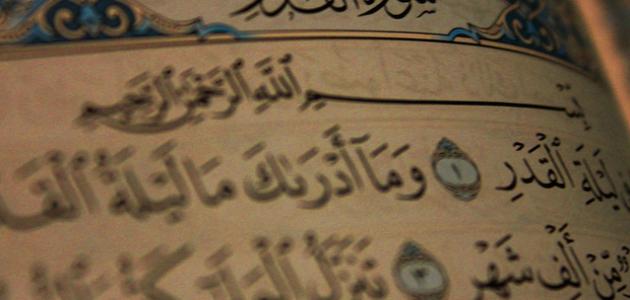 سورة القدر
بِسْمِ ٱللَّهِ ٱلرَّحْمَٰنِ ٱلرَّحِيمِ
لَيْلَةِ ٱلْقَدْرِ ١ وَمَآ أَدْرَىٰكَ مَا لَيْلَةُ
مِّنْ أَلْفِ شَهْرٍ ٣ تَنَزَّلُ